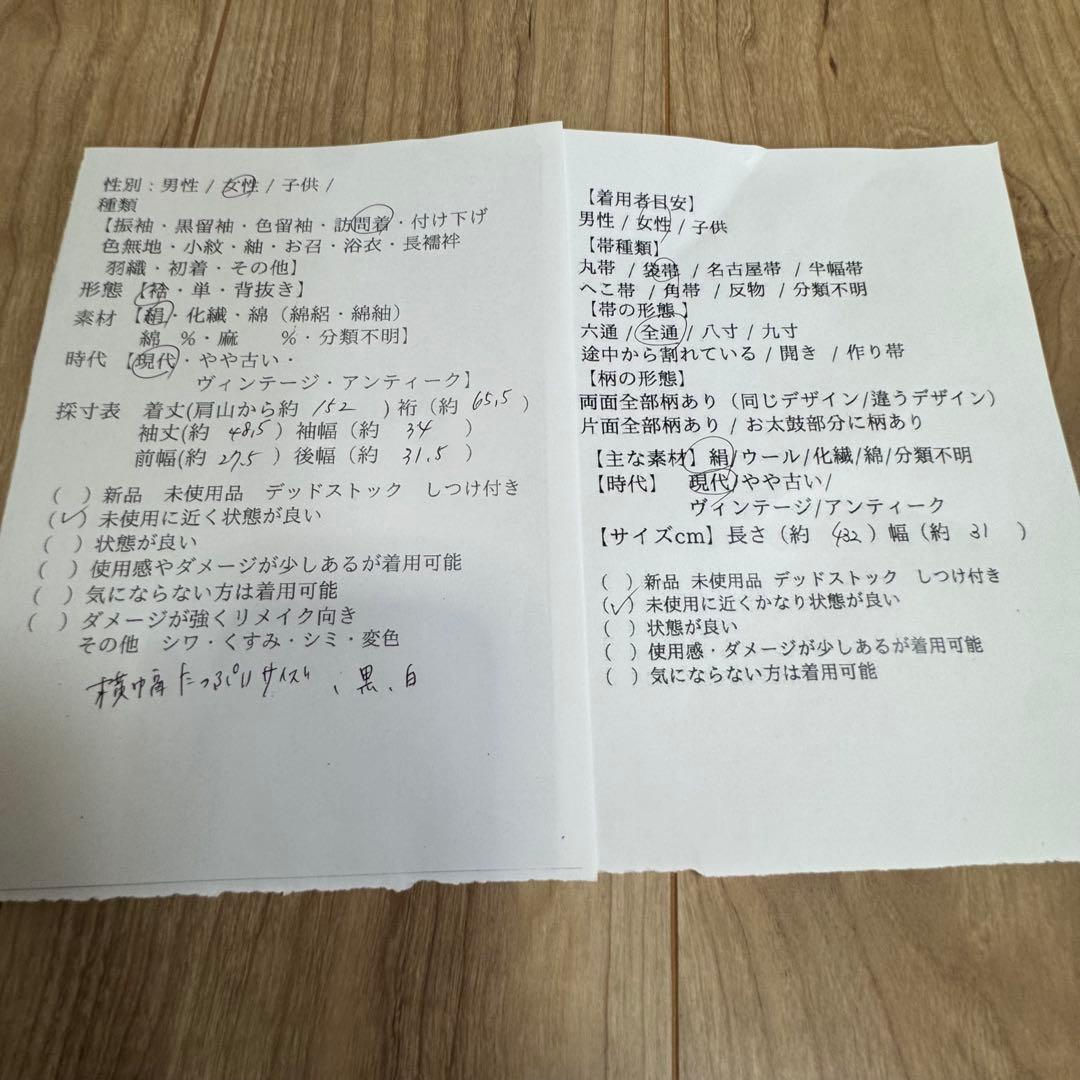 性別：男性 / 女性 / 子供 /
種類
【振袖・黒留袖・色留袖・訪問着・付け下げ
色無地・小紋・紬・お召・浴衣・長襦袢
羽織・初着・その他】
形態 【袷・単・背抜き】
素材 【絹・化繊・綿（綿絽・綿紬）
綿 %・麻 %・分類不明】
時代 【現代・やや古い・
ヴィンテージ・アンティーク】
採寸表 着丈(肩山から約 152 ) 裄（約 65,5 ）
袖丈(約 48,5 ）袖幅（約 34 ）
前幅(約 27,5 ）後幅（約 31,5 ）
( ) 新品 未使用品 デッドストック しつけ付き
(✓) 未使用に近く状態が良い
( ) 状態が良い
( ) 使用感やダメージが少しあるが着用可能
( ) 気にならない方は着用可能
( ) ダメージが強くリメイク向き
その他 シワ・くすみ・シミ・変色
横巾高たっぷりサイズ、黒、白
【着用者目安】
男性 / 女性 / 子供
【帯種類】
丸帯 / 袋帯 / 名古屋帯 / 半幅帯
へこ帯 / 角帯 / 反物 / 分類不明
【帯の形態】
六通 / 全通 / 八寸 / 九寸
途中から割れている / 開き / 作り帯
【柄の形態】
両面全部柄あり（同じデザイン/違うデザイン）
片面全部柄あり / お太鼓部分に柄あり
【主な素材】絹/ウール/化繊/綿/分類不明
【時代】 現代/やや古い/
ヴィンテージ/アンティーク
【サイズcm】長さ（約 432 ）幅（約 31 ）
( ) 新品 未使用品 デッドストック しつけ付き
(✓) 未使用に近くかなり状態が良い
( ) 状態が良い
( ) 使用感・ダメージが少しあるが着用可能
( ) 気にならない方は着用可能